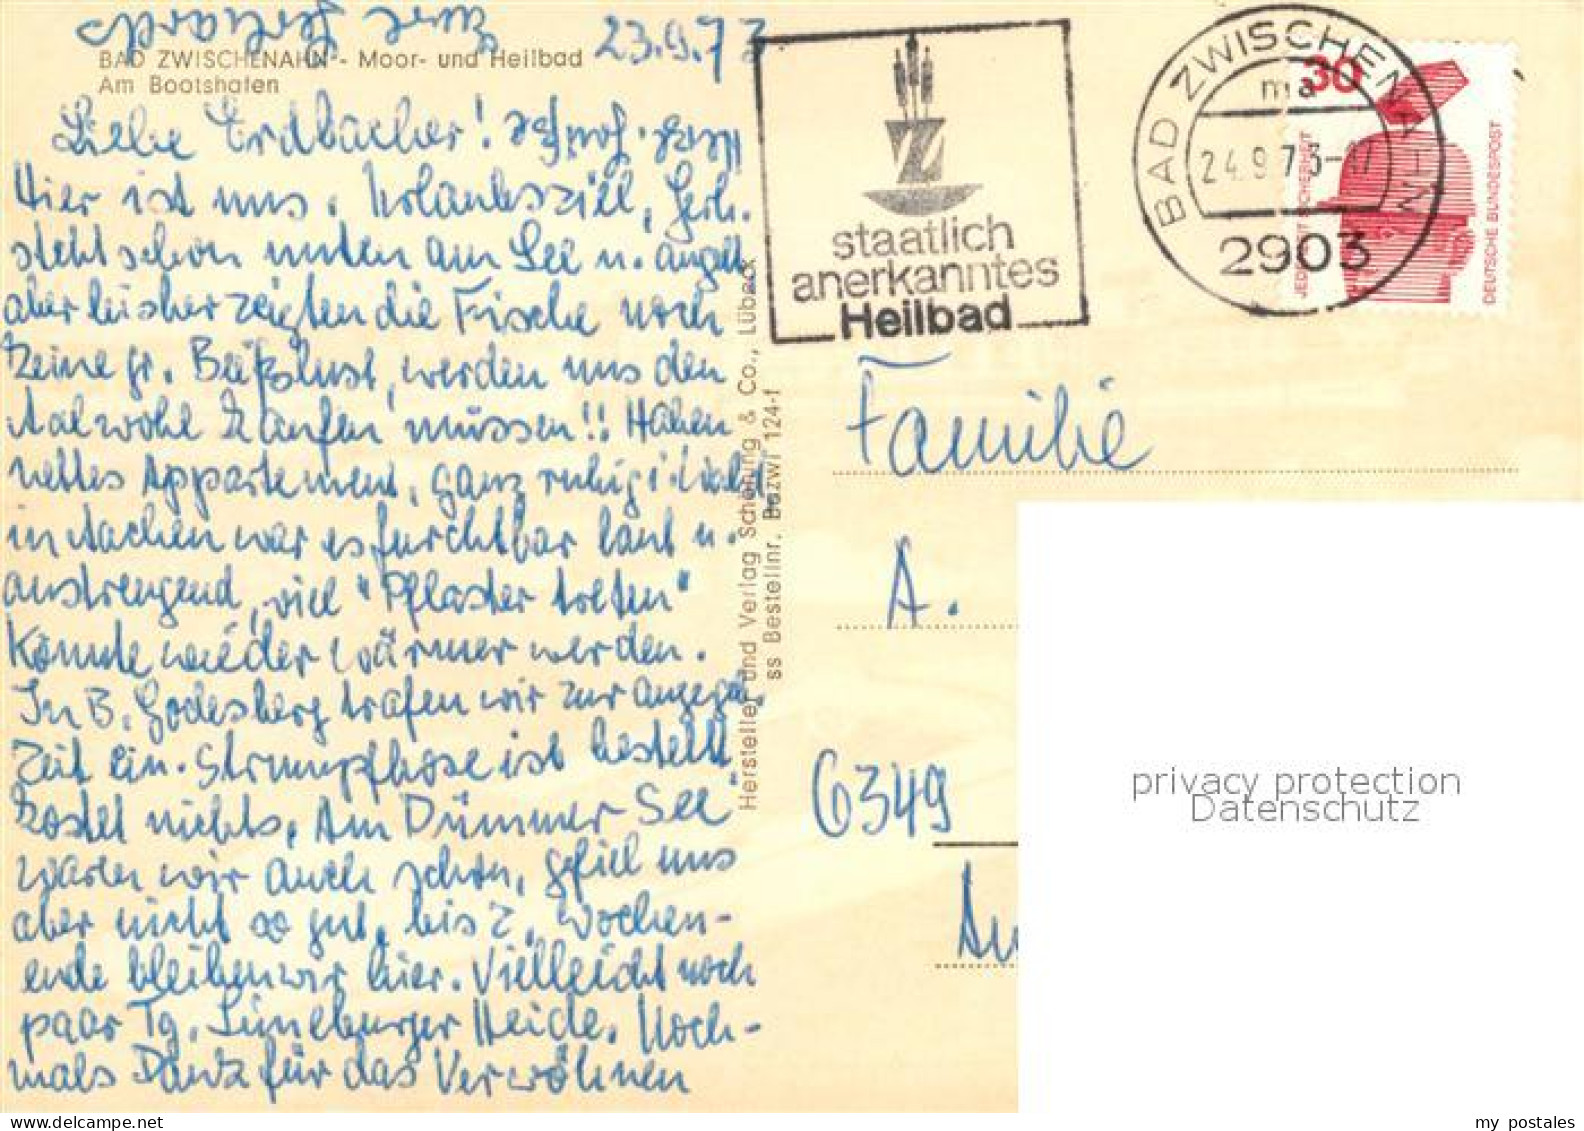 23.9.73
BAD ZWISCHENAHN - Moor- und Heilbad
Am Bootshafen
Liebe Erdbacher!
Hier ist uns. Urlaubsziel, Gerh.
steht schon unten am See u. angelt
aber bisher zeigten die Fische noch
keine gr. Beißlust, werden uns den
Aal wohl kaufen müssen!! Haben
nettes Appartement, ganz ruhig!
in Aachen war es furchtbar laut u.
anstrengend, viel "Pflaster treten"
Könnte wieder wärmer werden.
In B. Godesberg trafen wir zur angegeb.
Zeit ein. Strumpfhose ist bestellt
kostet nichts. Am Dümmer See
waren wir auch schon, gefiel uns
aber nicht so gut, bis z. Wochen-
ende bleiben wir hier. Vielleicht noch
paar Tg. Lüneburger Heide. Noch-
mals Dank für das Verwöhnen
Hersteller und Verlag Schöning & Co., Lübeck
ss Bestellnr. Bazwi 124-f
staatlich
anerkanntes
Heilbad
BAD ZWISCHENAHN
ma
24.9.73-17
2903
30
JEDERZEIT SICHERHEIT
DEUTSCHE BUNDESPOST
Familie
A.
6349
privacy protection
Datenschutz
my postales